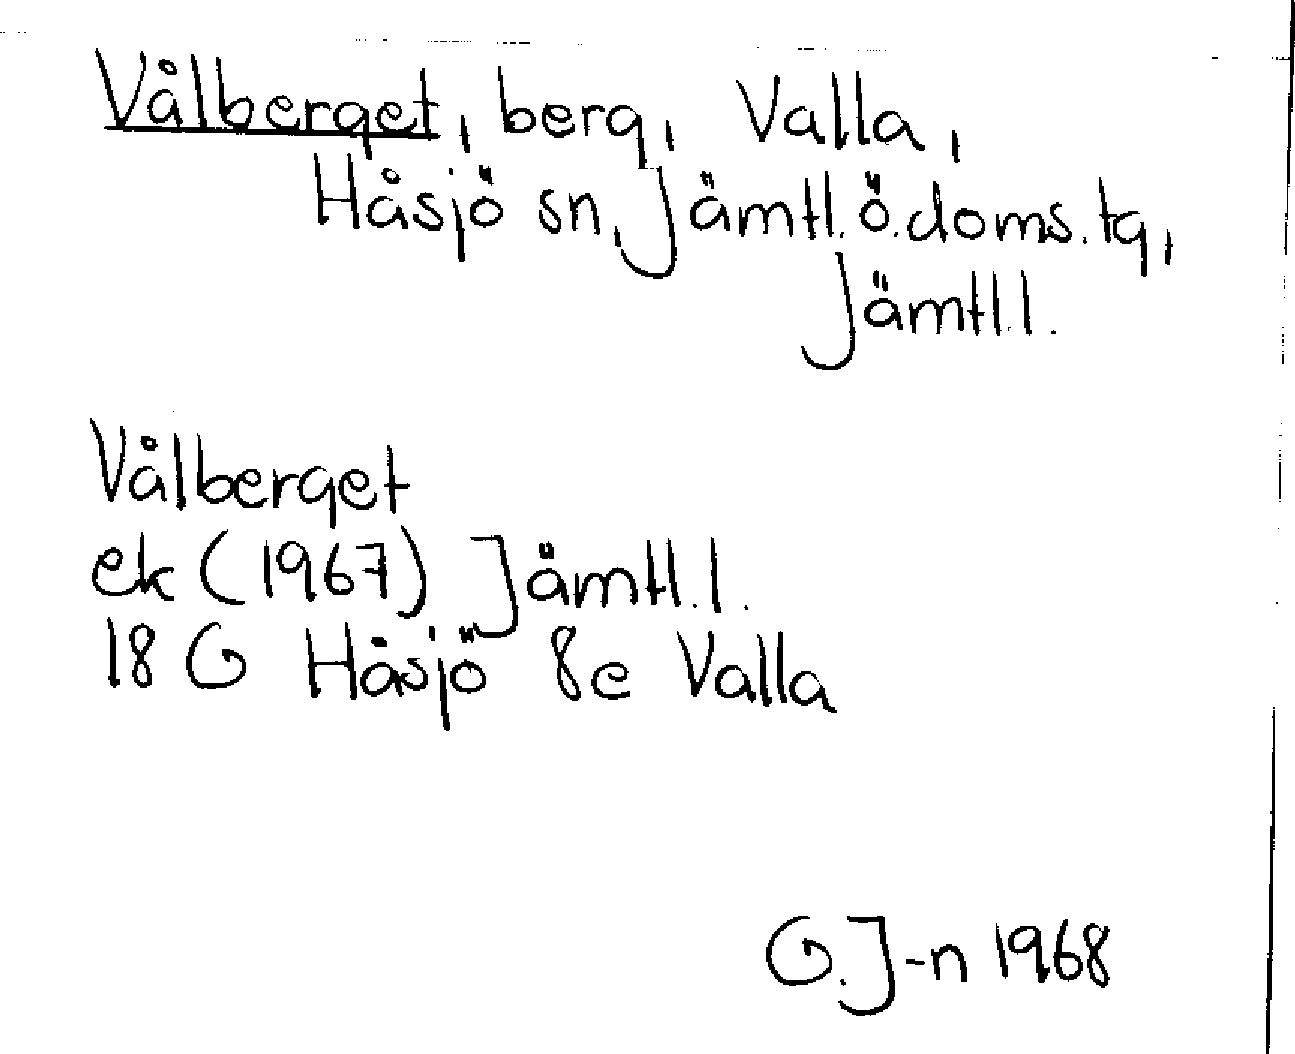 Vålberget, berg, Valla,
Håsjö sn, Jämtl.ö.doms.tg,
Jämtl.l.
Vålberget
ek (1967) Jämtl.l.
18 G Håsjö 8e Valla
G.J-n 1968